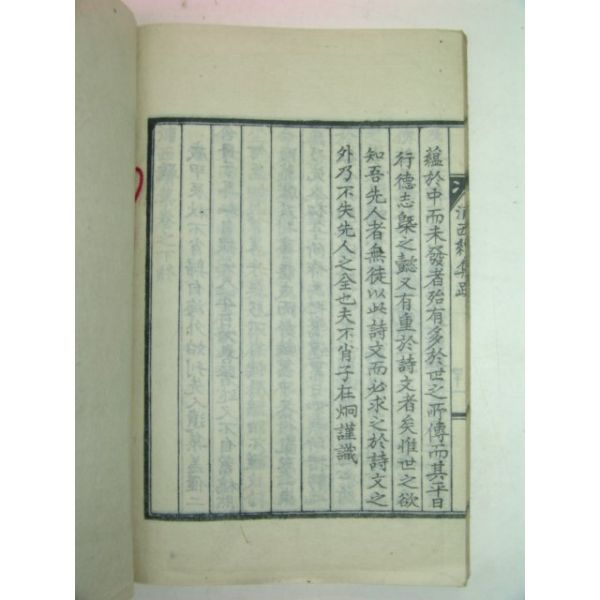 西雜集跋
蘊於中而未發者殆有多於世之所傳而其平日
行德志槩之懿又有重於詩文者矣惟世之欲
知吾先人者無徒以此詩文而必求之於詩文之
外乃不失先人之全也夫不肖子在炯謹識